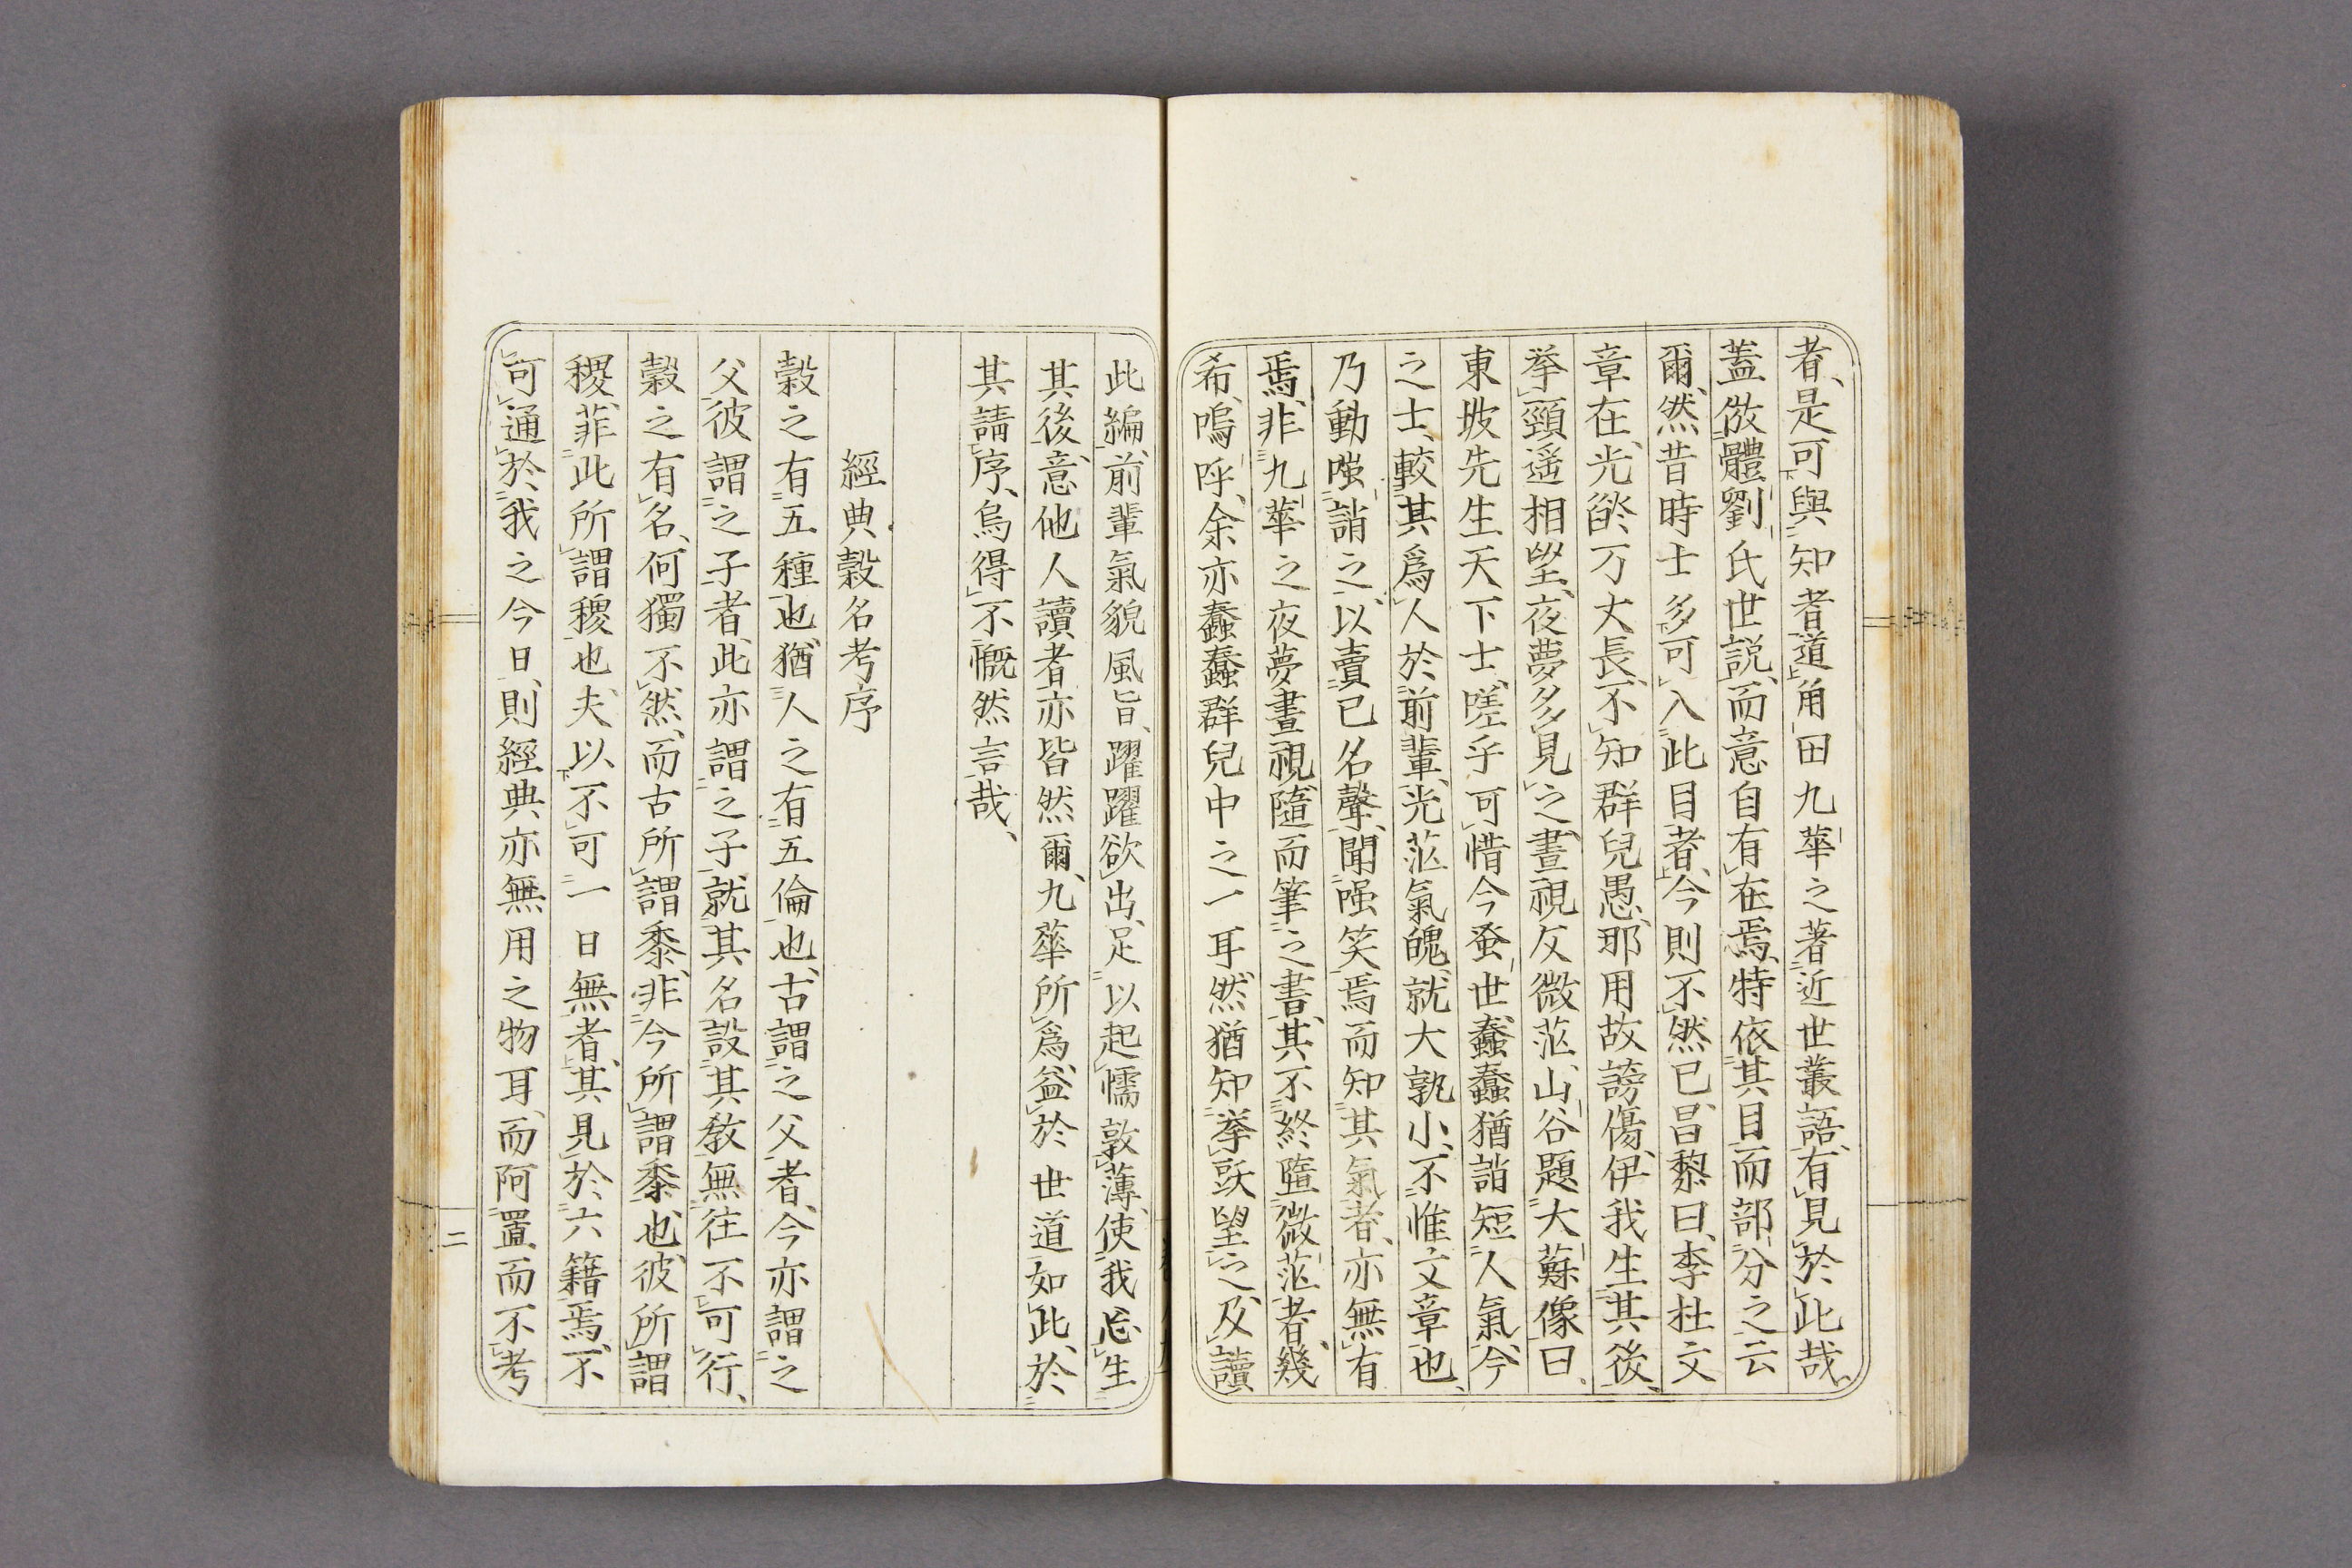 者、是可與知者道、角田九華之著近世叢語、有見於此哉、
蓋倣體劉氏世説、而意自有在焉、特依其目而部分之云
爾、然昔時士多可入此目者、今則不然已、昌黎曰、李杜文
章在、光燄万丈長、不知群兒愚、那用故謗傷、伊我生其後、
挙頸遥相望、夜夢多見之、晝視反微茫、山谷題大蘇像曰、
東坡先生天下士、嗟乎可惜今蚤世、蠢蠢猶詣短人氣、今
之士、較其爲人於前輩、光茫氣魄、就大孰小、不惟文章也、
乃動嗤誚之、以賣己名聲、聞强笑焉而知其氣者、亦無有
焉、非九華之夜夢晝視、隨而筆之書、其不終墮微茫者、幾
希、嗚呼、余亦蠢蠢群兒中之一耳、然猶知挙跂望之、及讀
此編、前輩氣貌風旨、躍躍欲出、足以起懦敦薄、使我忘生
其後、意他人讀者、亦皆然爾、九華所爲、益於世道如此、於
其請序、烏得不慨然言哉、
經典穀名考序
穀之有五種也、猶人之有五倫也、古謂之父者、今亦謂之
父、彼謂之子者、此亦謂之子、就其名設其教、無往不可行、
穀之有名、何獨不然、而古所謂黍、非今所謂黍也、彼所謂
稷、菲此所謂稷也、夫以不可一日無者、其見於六籍焉、不
可通於我之今日、則經典亦無用之物耳、而阿置而不考
二